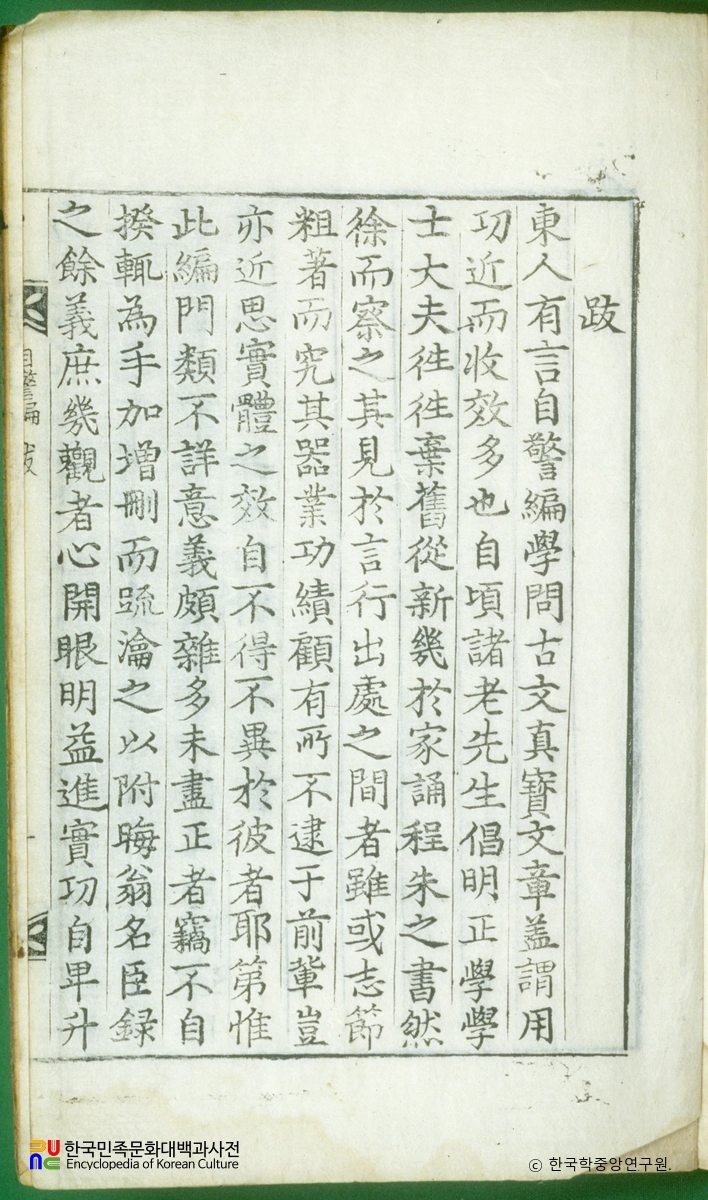 跋
東人有言自警編學問古文真寶文章盖謂用
功近而收效多也自頃諸老先生倡明正學學
士大夫徃徃棄舊從新幾於家誦程朱之書然
徐而察之其見於言行出處之間者雖或志節
粗著而究其器業功績顧有所不逮于前軰豈
亦近思實體之效自不得不異於彼者耶第惟
此編門類不詳意義頗雜多未盡正者竊不自
揆輒為手加增刪而䟽瀹之以附晦翁名臣錄
之餘義庶幾觀者心開眼明益進實功自卑升
自警編 跋
一
한국민족문화대백과사전
Encyclopedia of Korean Culture
ⓒ 한국학중앙연구원.